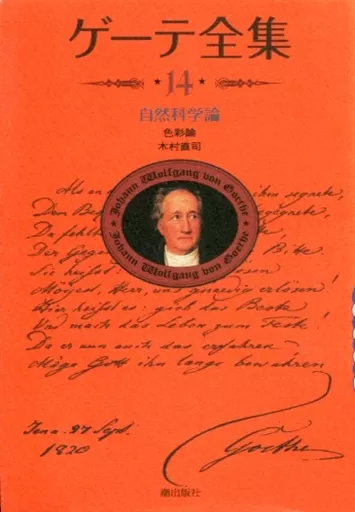 ゲーテ全集
14
自然科学論
色彩論
木村直司
Johann Wolfgang von Goethe
Johann Wolfgang von Goethe
Als er ihm segnete,
Den gegnete,
Da fehlt
Der Gegen Bitte
Sie
Herr, uns gnaedig erlösen!
Hier heißt es: gieb das Beste
Und mach das Leben zum Feste;
Da er nun auch das erfahren
Möge Gott ihn lange bewahren
Jena 27 Sept.
1820
Goethe
潮出版社